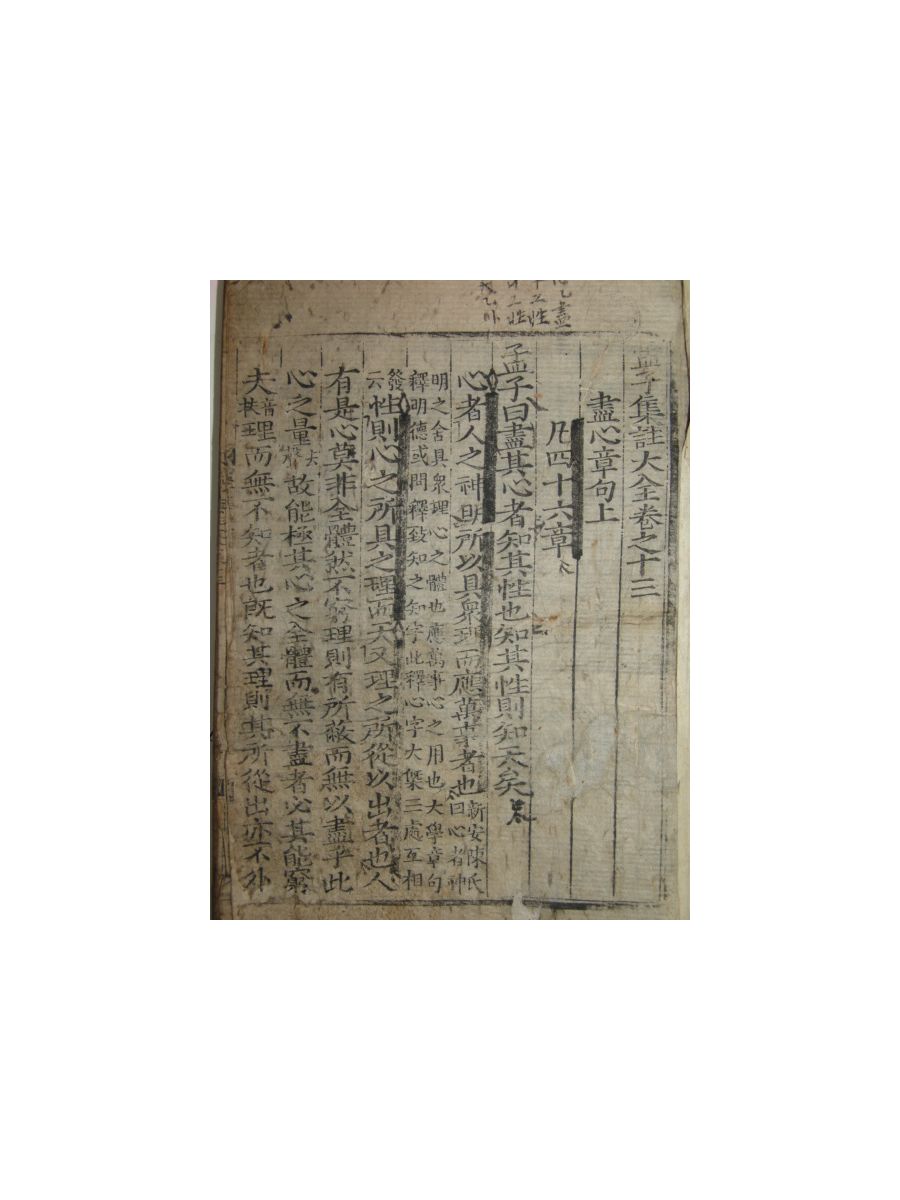 孟子集註大全卷之十三
盡心章句上
凡四十六章
孟子曰盡其心者知其性也知其性則知天矣
心者人之神明所以具衆理而應萬事者也
新安陳氏
曰心者神
明之舍具衆理心之體也應萬事心之用也大學章句
釋明德或問釋致知之知字此釋心字大槩三處互相
發
云
性則心之所具之理而天又理之所從以出者也人
有是心莫非全體然不窮理則有所蔽而無以盡乎此
心之量
故能極其心之全體而無不盡者必其能窮
夫
音
扶
理而無不知者也旣知其理則其所從出亦不外